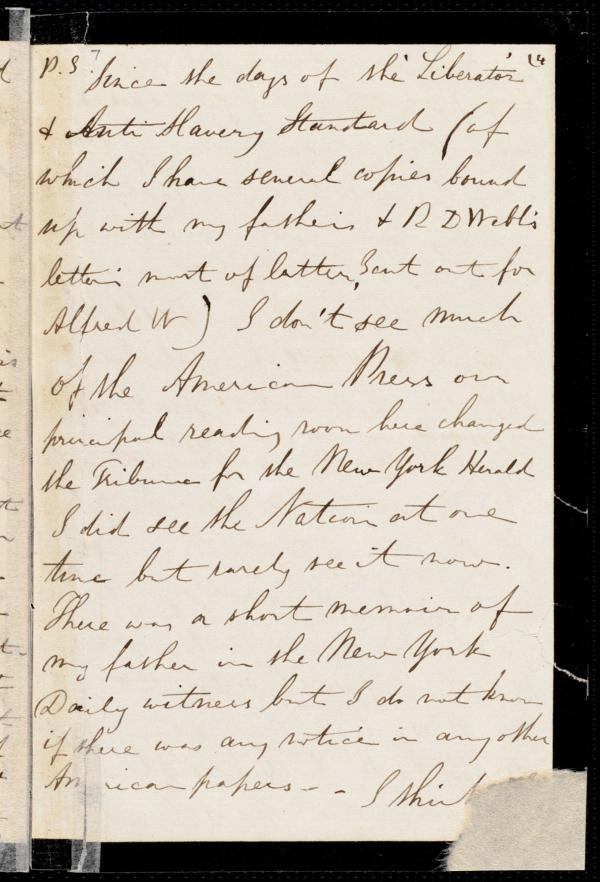 P. S Since the days of the Liberator 14
& Anti Slavery Standard (of
which I have several copies bound
up with my father's & R D Webb's
letters most of latter, cut out for
Alfred W) I don't see much
of the American Press our
principal reading room here changed
the Tribune for the New York Herald
I did see the Nation at one
time but rarely see it now.
There was a short memoir of
my father in the New York
Daily witness but I do not know
if there was any notice in any other
American papers - - I think